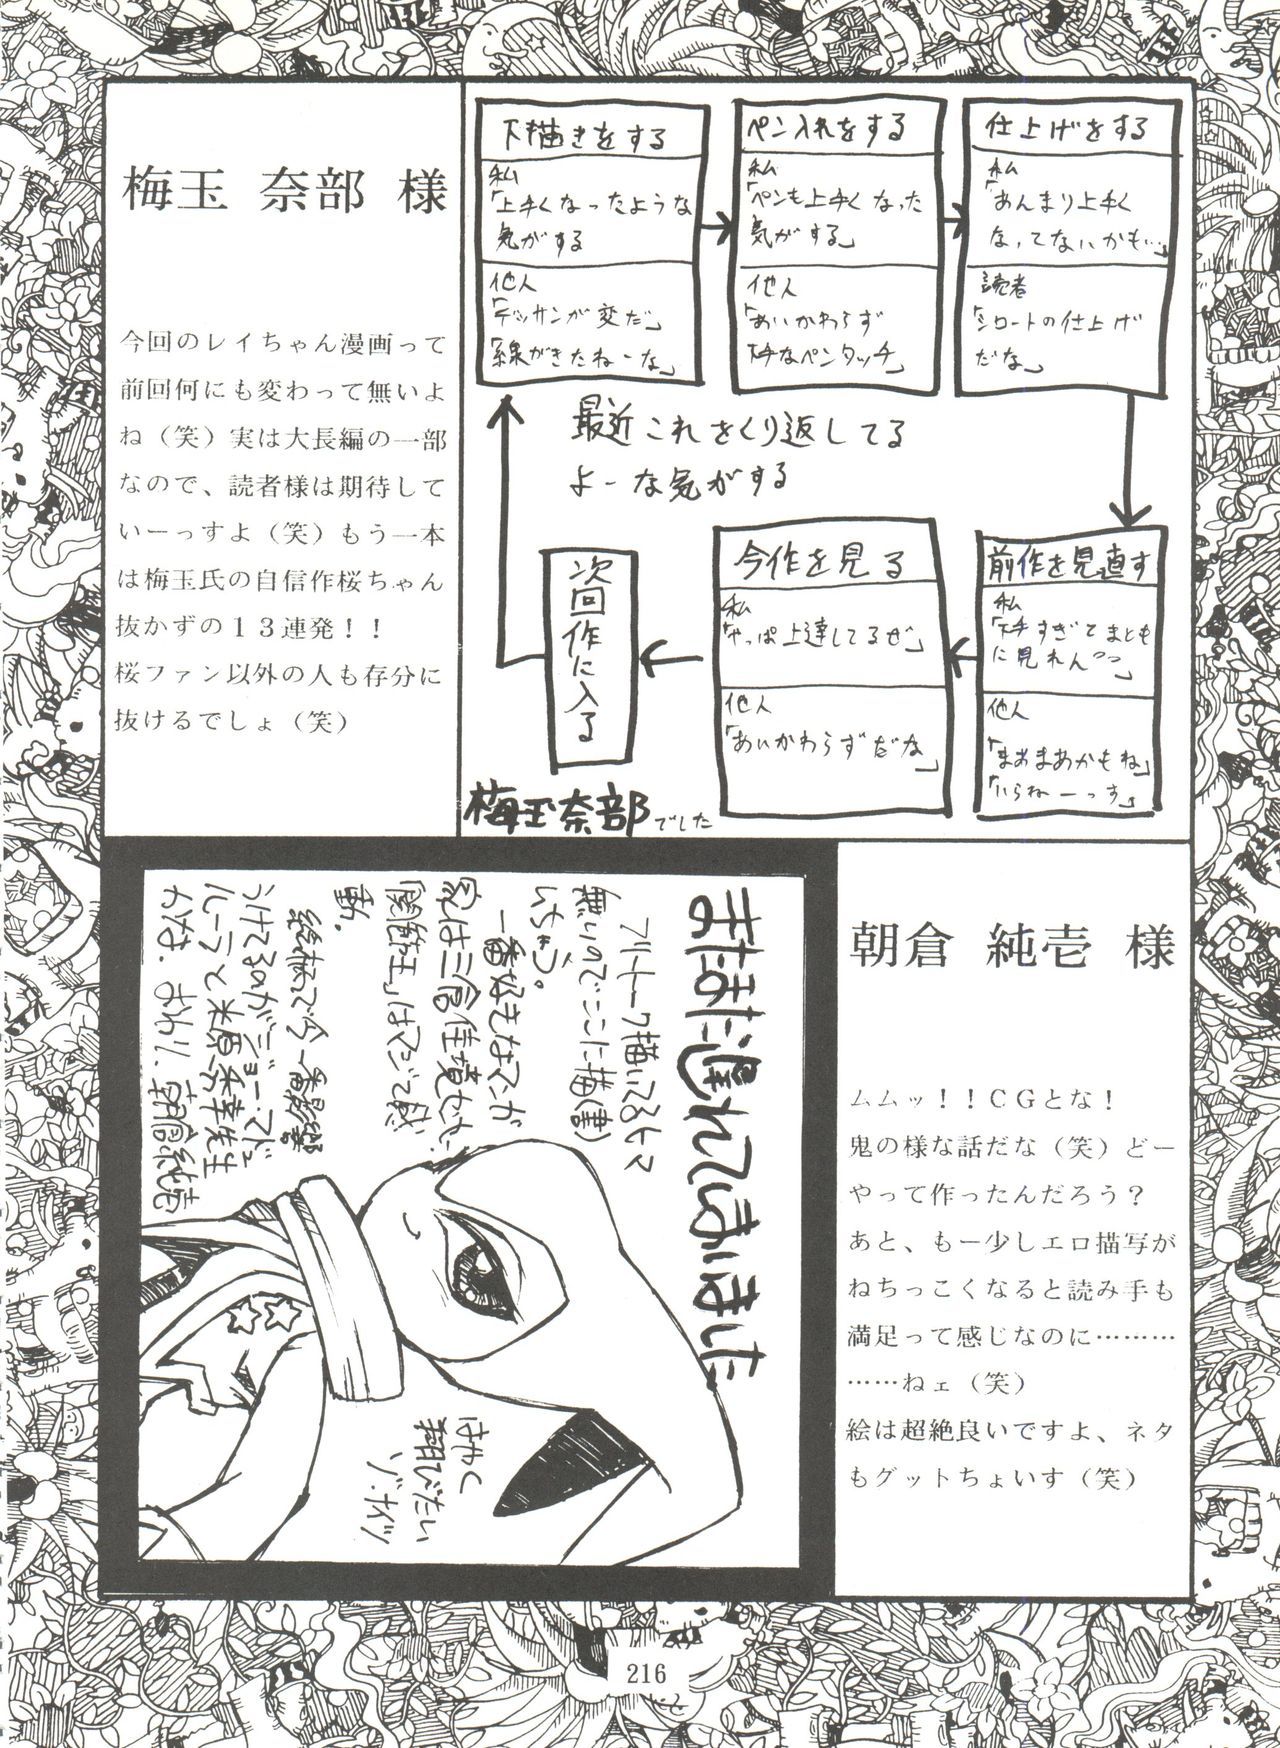 梅玉 奈部 様
今回のレイちゃん漫画って
前回何にも変わって無いよ
ね（笑）実は大長編の一部
なので、読者様は期待して
いーっすよ（笑）もう一本
は梅玉氏の自信作桜ちゃん
抜かずの１３連発！！
桜ファン以外の人も存分に
抜けるでしょ（笑）
下描きをする
私
「上手くなったような
気がする
他人
「デッサンが変だ」
「線がきたねーな」
ペン入れをする
私
「ペンも上手くなった
気がする」
他人
「あいかわらず
なペンタッチ」
仕上げをする
私
「あんまり上手く
なってないかも…」
読者
「シロートの仕上げ
だな」
前作を見直す
私
すぎてまとも
に見れん
他人
「まあまあかもね」
「いらねーっす」
今作を見る
私
「やっぱ上達してるぜ」
他人
「あいかわらずだな」
次回作に入る
最近これをくり返してる
よーな気がする
梅玉奈部でした
朝倉 純壱 様
ムムッ！！ＣＧとな！
鬼の様な話だな（笑）どー
やって作ったんだろう？
あと、もー少しエロ描写が
ねちっこくなると読み手も
満足って感じなのに………
……ねェ（笑）
絵は超絶良いですよ、ネタ
もグットちょいす（笑）
またまた遅れてしまいました
フリートーク描いてるヒマ
無いのでここに描(書)
いちゃう。
一番好きなマンガ
家は三倉佳境さん。
「闇雀王」はマジで感
動。
総板で今一番影響
うけてるのがジョー・マデュ
レーラと米原秀幸先生
かな。おわり。朝倉純壱
はやく
遊びたい
ゾ・ナムツ
216